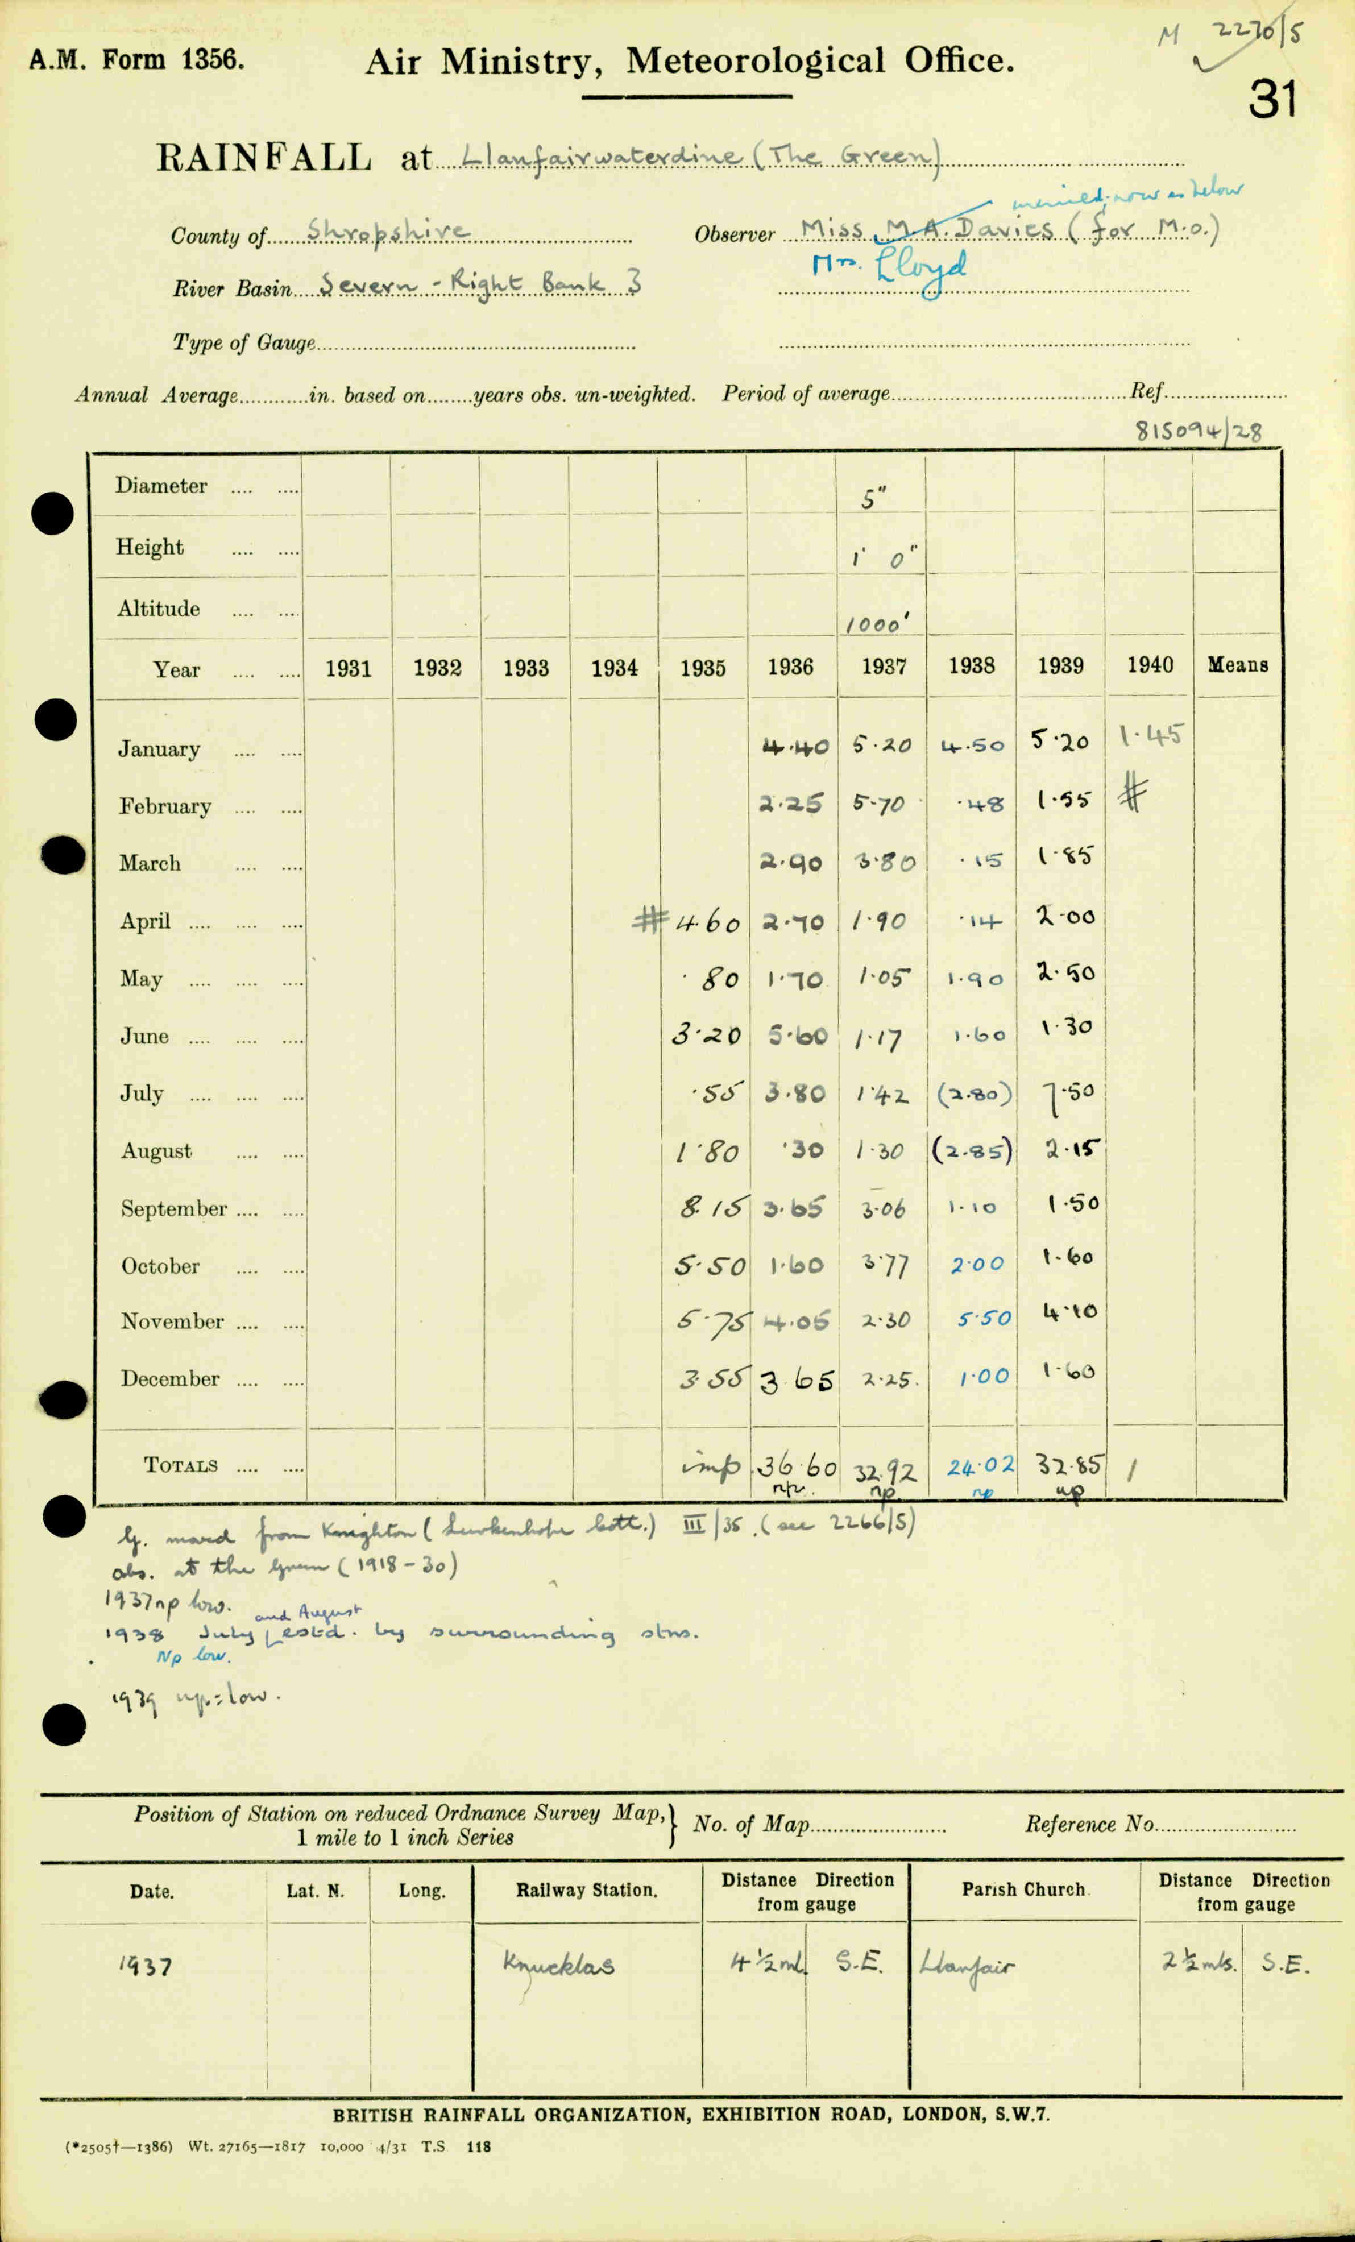 M 2270/5
A.M. Form 1356. Air Ministry, Meteorological Office.
31
RAINFALL at Llanfairwaterdine (The Green)
married, now as below
County of Shropshire Observer Miss M.A. Davies (for M.O.)
Mrs. Lloyd
River Basin Severn - Right Bank 3
Type of Gauge
Annual Average in. based on years obs. un-weighted. Period of average Ref.
815094/28
Diameter 5"
Height 1' 0"
Altitude 1000'
Year 1931 1932 1933 1934 1935 1936 1937 1938 1939 1940 Means
January 4.40 5.20 4.50 5.20 1.45
February 2.25 5.70 .48 1.55 #
March 2.90 3.80 .15 1.85
April # 4.60 2.70 1.90 .14 2.00
May .80 1.70 1.05 1.90 2.50
June 3.20 5.60 1.17 1.60 1.30
July .55 3.80 1.42 (2.80) 7.50
August 1.80 .30 1.30 (2.85) 2.15
September 8.15 3.65 3.06 1.10 1.50
October 5.50 1.60 3.77 2.00 1.60
November 5.75 4.05 2.30 5.50 4.10
December 3.55 3.65 2.25 1.00 1.60
TOTALS imp 36.60 32.92 24.02 32.85 /
np. np np np
G. moved from Knighton ( Cott.) III/35. (see 2266/5)
obs. at the Green (1918-30)
1937 np low.
and August
1938 July estd. by surrounding stns.
Np low.
1939 np = low.
Position of Station on reduced Ordnance Survey Map, } No. of Map Reference No.
1 mile to 1 inch Series
Date. Lat. N. Long. Railway Station. Distance Direction from gauge Parish Church. Distance Direction from gauge
1937 Knucklas 4½ml S.E. Llanfair 2½mls. S.E.
BRITISH RAINFALL ORGANIZATION, EXHIBITION ROAD, LONDON, S.W.7.
(*2505†—1386) Wt. 27165—1817 10,000 4/31 T.S. 118